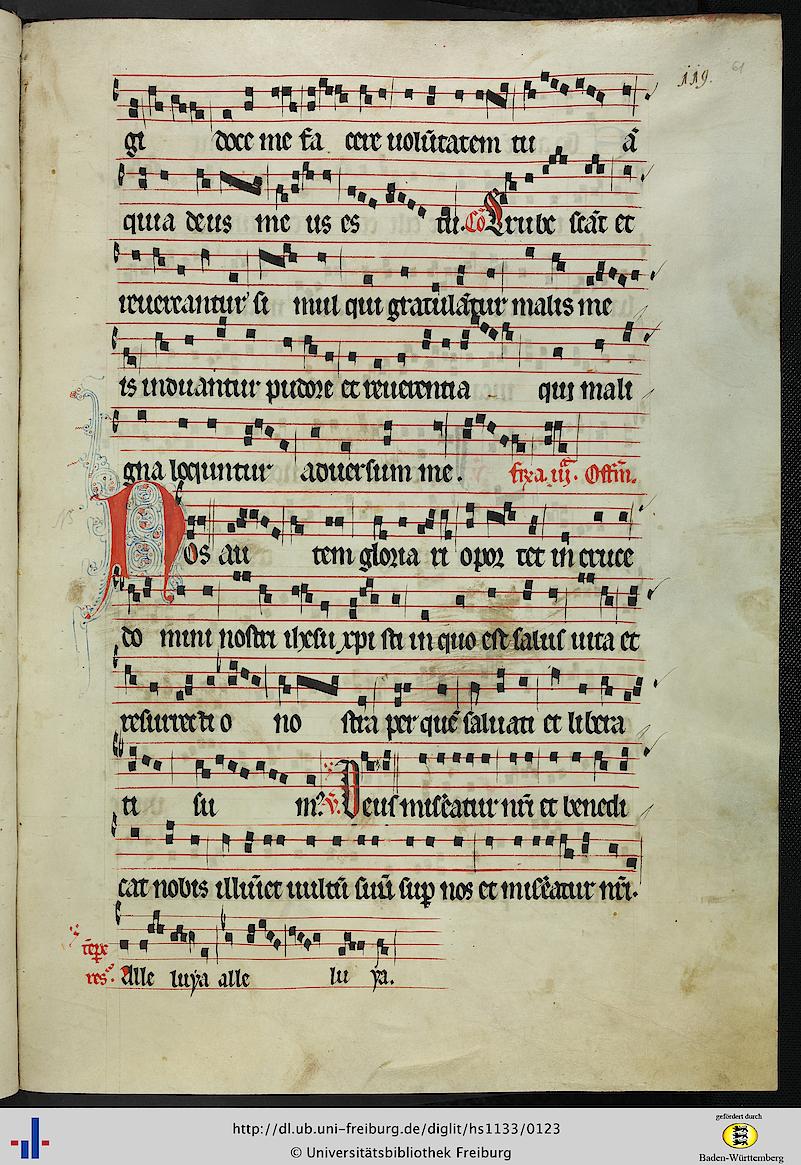 119. 61
gi doce me fa cere uolūtatem tu ā
quia deus me us es tu. Cō Erube scāt et
reuereantur si mul qui gratulātur malis me
is induantur pudore et reuerentia qui mali
gna loquuntur aduersum me. fr̄a. iij. Offm̄.
Nos au tem gloria ri opor tet in cruce
do mini nostri ihesu xpi sti in quo est salus uita et
resurrecti o no stra per quē saluati et libera
ti su m9. V. Deus misēatur nr̄i et benedi
cat nobis illūet uultū suū sup nos et misēatur nr̄i.
Alle luya alle lu ya.
http://dl.ub.uni-freiburg.de/diglit/hs1133/0123
© Universitätsbibliothek Freiburg
gefördert durch
Baden-Württemberg